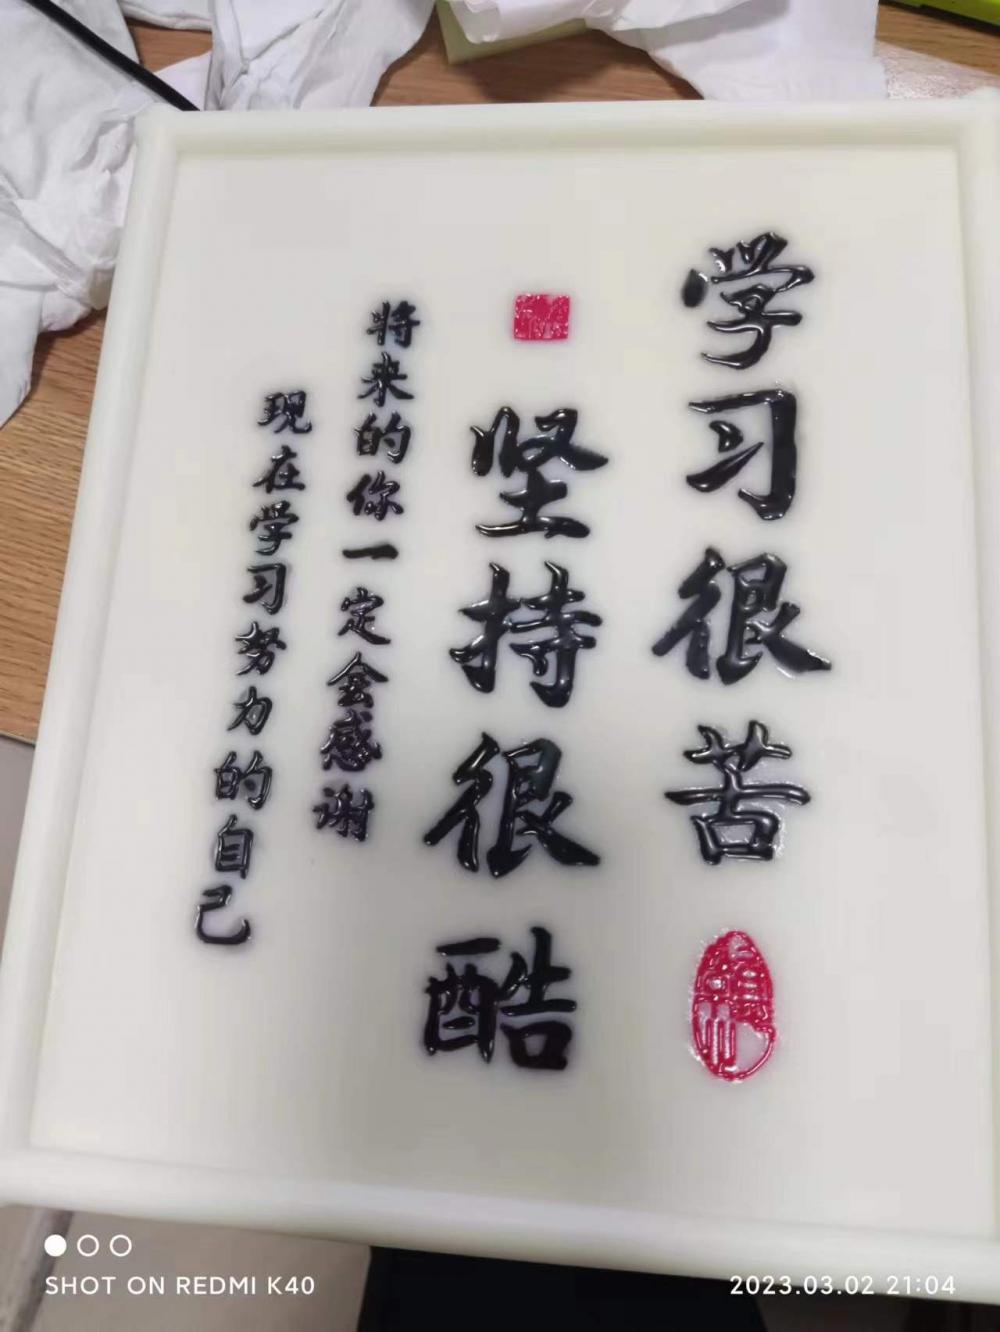 学习很苦
坚持很酷
将来的你一定会感谢
现在学习努力的自己
SHOT ON REDMI K40
2023.03.02 21:04